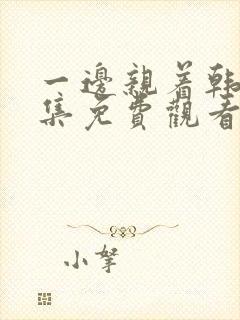 一邊親着韩
集免費觀看
小拏